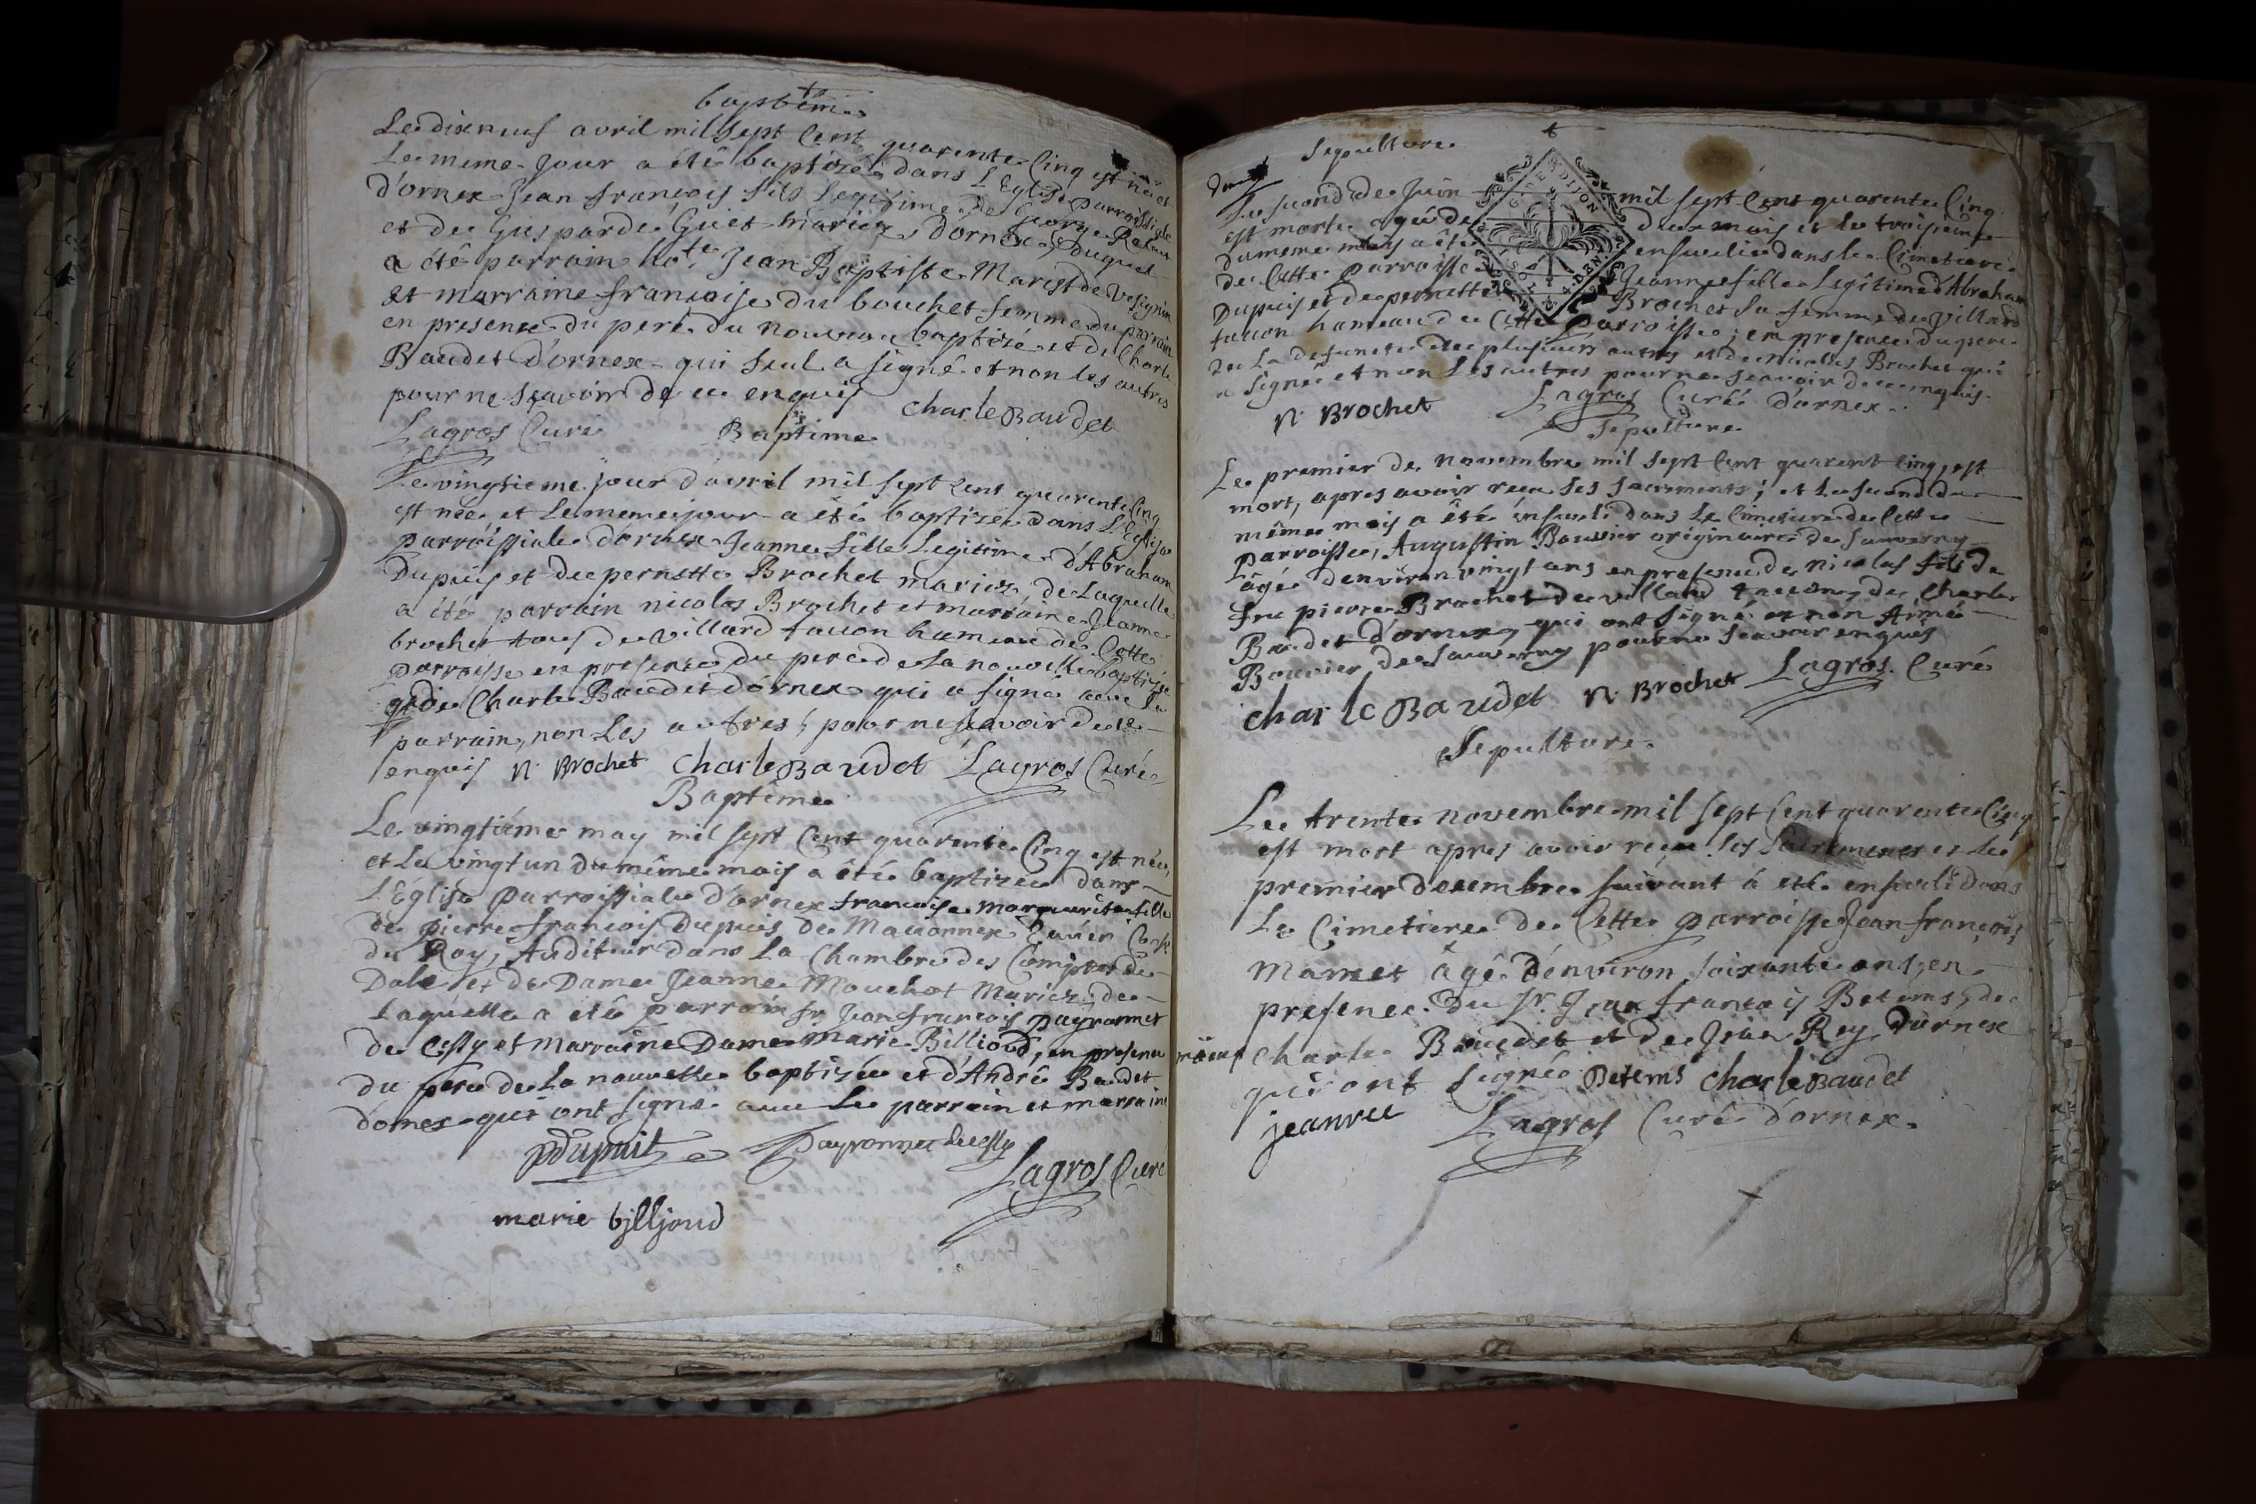 baptême
Le dix neuf avril mil sept Cent quarente Cinq est né et
Le meme Jour a été baptizé dans L'Eglise parroissiale
d'ornex Jean françois fils Legitime de George
et de Gasparde Guiet mariez d'ornex, duquel
a été parrain hote Jean Baptiste Marest de Vesegnin
et marraine françoise du bouchet femme du parrain
en presence du pere du nouveau baptizé et de Charle
Baudet d'ornex qui seul a signé et non les autres
pour ne sçavoir de ce enquis
charle Baudet
Lagros Curé
Baptême
Le vingtieme jour d'avril mil sept Cent quarente Cinq
est née et Le meme jour a été baptizée dans L'Eglise
parroissiale d'ornex Jeanne fille Legitime d'Abraham
Dupuis et de pernette Brochet mariez, de Laquelle
a été parrain nicolas Brochet et marraine Jeanne
brochet tous de Villard tacon hameau de Cette
parroisse en presence du pere de la nouvelle baptizée
et de Charle Baudet d'ornex qui a signé avec le
parrain, non Les autres, pour ne sçavoir de ce
enquis N. Brochet Charle Baudet Lagros Curé
Baptême
Le vingtiéme may mil sept Cent quarente Cinq est née,
et Le vingt un du même mois a été baptizée dans
L'Eglise parroissiale d'ornex francoise marguerite fille
de pierre françois Dupuis de Maconnex Ecuier Cons.
du Roy, Auditeur dans La Chambre des Comptes de
Dole et de Dame Jeanne Mouchot Mariez, de
Laquelle a été parrain sr Jean francois payronnet
de Cessy et Marraine Dame Marie Billioud, en presence
du pere de La nouvelle baptizée et d'André Baudet
d'ornex qui ont signé avec Le parrain et marraine
PDupuit Payronnet de Cessy
Lagros Curé
marie billjoud
Sepulture
Le second de Juin mil sept Cent quarente Cinq
est morte agée de deux mois et le troisieme
du meme mois a été ensevelie dans le Cimetiere
de Cette parroisse Jeanne fille Legitime d'Abraham
Dupuis et de pernette Brochet sa femme de Villard
tacon hameau de Cette parroisse; en presence du pere
de La defuncte de plusieurs autres et de nicolas Brochet qui
a signé et non Les autres pour ne sçavoir de ce enquis.
N. Brochet Lagros Curé d'ornex.
Sepulture
Le premier de novembre mil sept Cent quarent Cinq, est
mort, apres avoir recu ses sacrements; et Le second du
même mois a été enseveli dans Le Cimetiere de Cette
parroisse, Augustin Bouvier originaire de Sauverny
âgé d'environ vingt ans en presence de nicolas fils de
feu pierre Brochet de villard tacon, de Charle
Baudet d'ornex, qui ont signé et non Aimé
Bouvier de Sauverny pour ne sçavoir enquis
Charle Baudet N. Brochet Lagros Curé
Sepulture
Le trente novembre mil sept Cent quarente Cinq
est mort apres avoir reçu ses Sacrements et Le
premier decembre suivant à eté enseveli dans
Le Cimetiere de Cette parroisse Jean françois
Mamet âgé d'environ soixante ans, en
presence du sr. Jean francois Betems, de
Charle Baudet et de Jean Rey d'ornex
qui ont signé Betems Charle Baudet
jean rei Lagros Curé d'ornex.